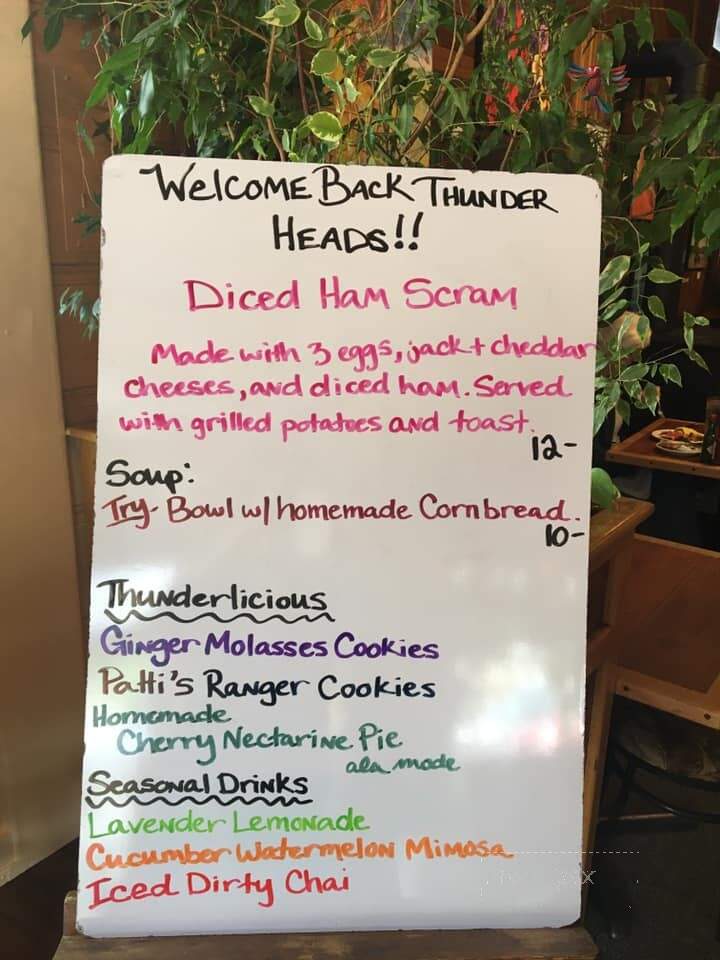 Welcome Back Thunder
Heads!!
Diced Ham Scram
Made with 3 eggs, jack + cheddar
cheeses, and diced ham. Served
with grilled potatoes and toast.
12-
Soup:
Try- Bowl w/ homemade Cornbread.
10-
Thunderlicious
Ginger Molasses Cookies
Patti's Ranger Cookies
Homemade
Cherry Nectarine Pie
ala mode
Seasonal Drinks
Lavender Lemonade
Cucumber Watermelon Mimosa
Iced Dirty Chai